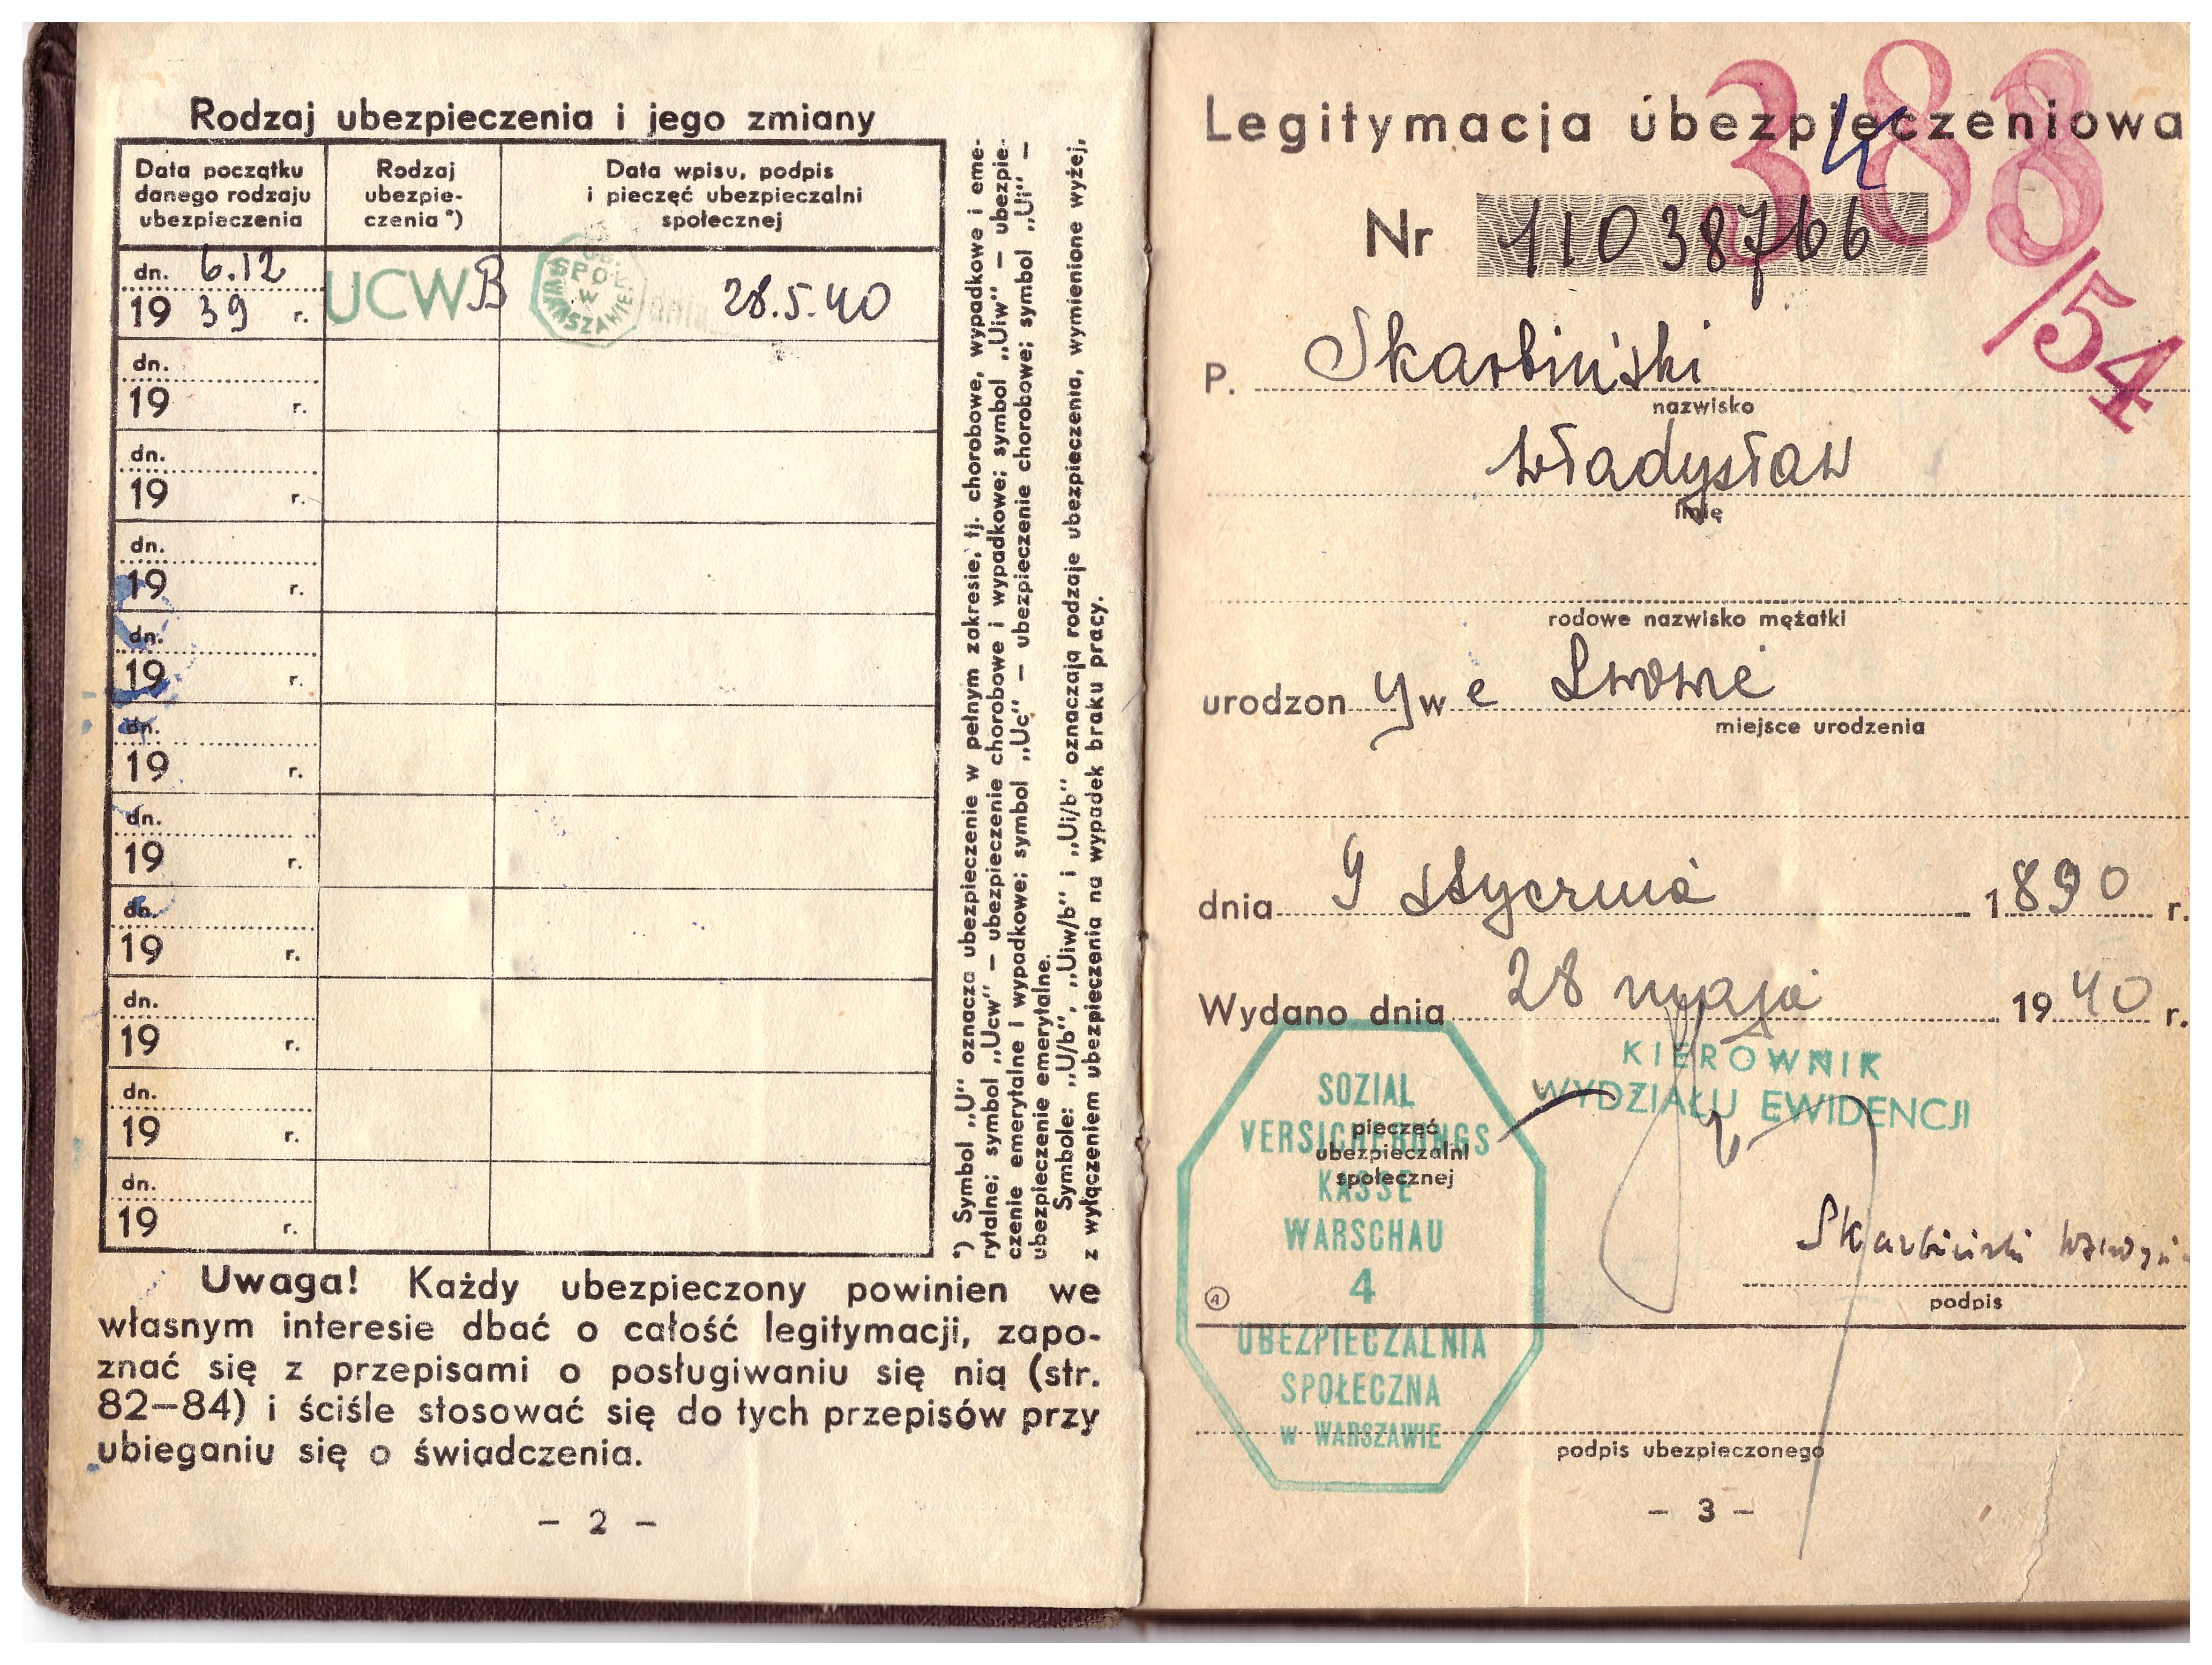 Rodzaj ubezpieczenia i jego zmiany
Data początku
danego rodzaju
ubezpieczenia
Rodzaj
ubezpie-
czenia *)
Data wpisu, podpis
i pieczęć ubezpieczalni
społecznej
dn. 6.12
19 39 r.
UCW B
SPOŁ.
W
WARSZAWIE
dnia
28.5.40
dn.
19 r.
dn.
19 r.
dn.
19 r.
dn.
19 r.
dn.
19 r.
dn.
19 r.
dn.
19 r.
dn.
19 r.
dn.
19 r.
dn.
19 r.
*) Symbol „U" oznacza ubezpieczenie w pełnym zakresie, tj. chorobowe, wypadkowe i eme-
rytalne; symbol „Ucw" — ubezpieczenie chorobowe i wypadkowe; symbol „Uiw" — ubezpie-
czenie emerytalne i wypadkowe; symbol „Uc" — ubezpieczenie chorobowe; symbol „Ui" —
ubezpieczenie emerytalne.
Symbole: „U/b", „Uiw/b" i „Ui/b" oznaczają rodzaje ubezpieczenia, wymienione wyżej,
z wyłączeniem ubezpieczenia na wypadek braku pracy.
Uwaga! Każdy ubezpieczony powinien we
własnym interesie dbać o całość legitymacji, zapo-
znać się z przepisami o posługiwaniu się nią (str.
82—84) i ściśle stosować się do tych przepisów przy
ubieganiu się o świadczenia.
— 2 —
388/54
Legitymacja ubezpieczeniowa
Nr 11038766
P. Skarbiński
nazwisko
Władysław
imię
rodowe nazwisko mężatki
urodzon y w e Lwowie
miejsce urodzenia
dnia 9 stycznia 1890 r.
Wydano dnia 28 maja 1940 r.
KIEROWNIK
WYDZIAŁU EWIDENCJI
SOZIAL
VERSICHERUNGS
KASSE
WARSCHAU
4
UBEZPIECZALNIA
SPOŁECZNA
w WARSZAWIE
pieczęć
ubezpieczalni
społecznej
Skarbiński
podpis
4
podpis ubezpieczonego
— 3 —